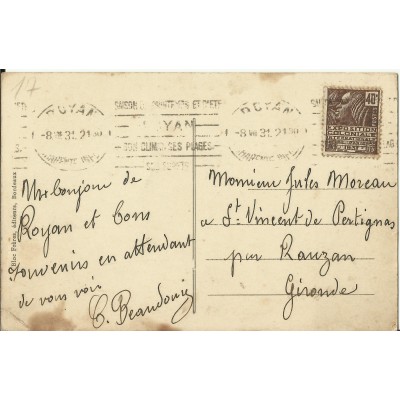 17
ROYAN
-8 VIII 31. 21
SAISON DE PRINTEMPS ET D'ÉTÉ
ROYAN
SON CLIMAT SES PLAGES
ROYAN
-8 VIII 31. 21
40c
EXPOSITION
COLONIALE
INTERNATIONALE
PARIS 1931
Un bonjour de
Royan et bons
souvenirs en attendant
de vous voir
Monsieur Jules Moreau
a St Vincent de Pertignas
par Rauzan
Gironde
Bloc Frères, éditeurs, Bordeaux